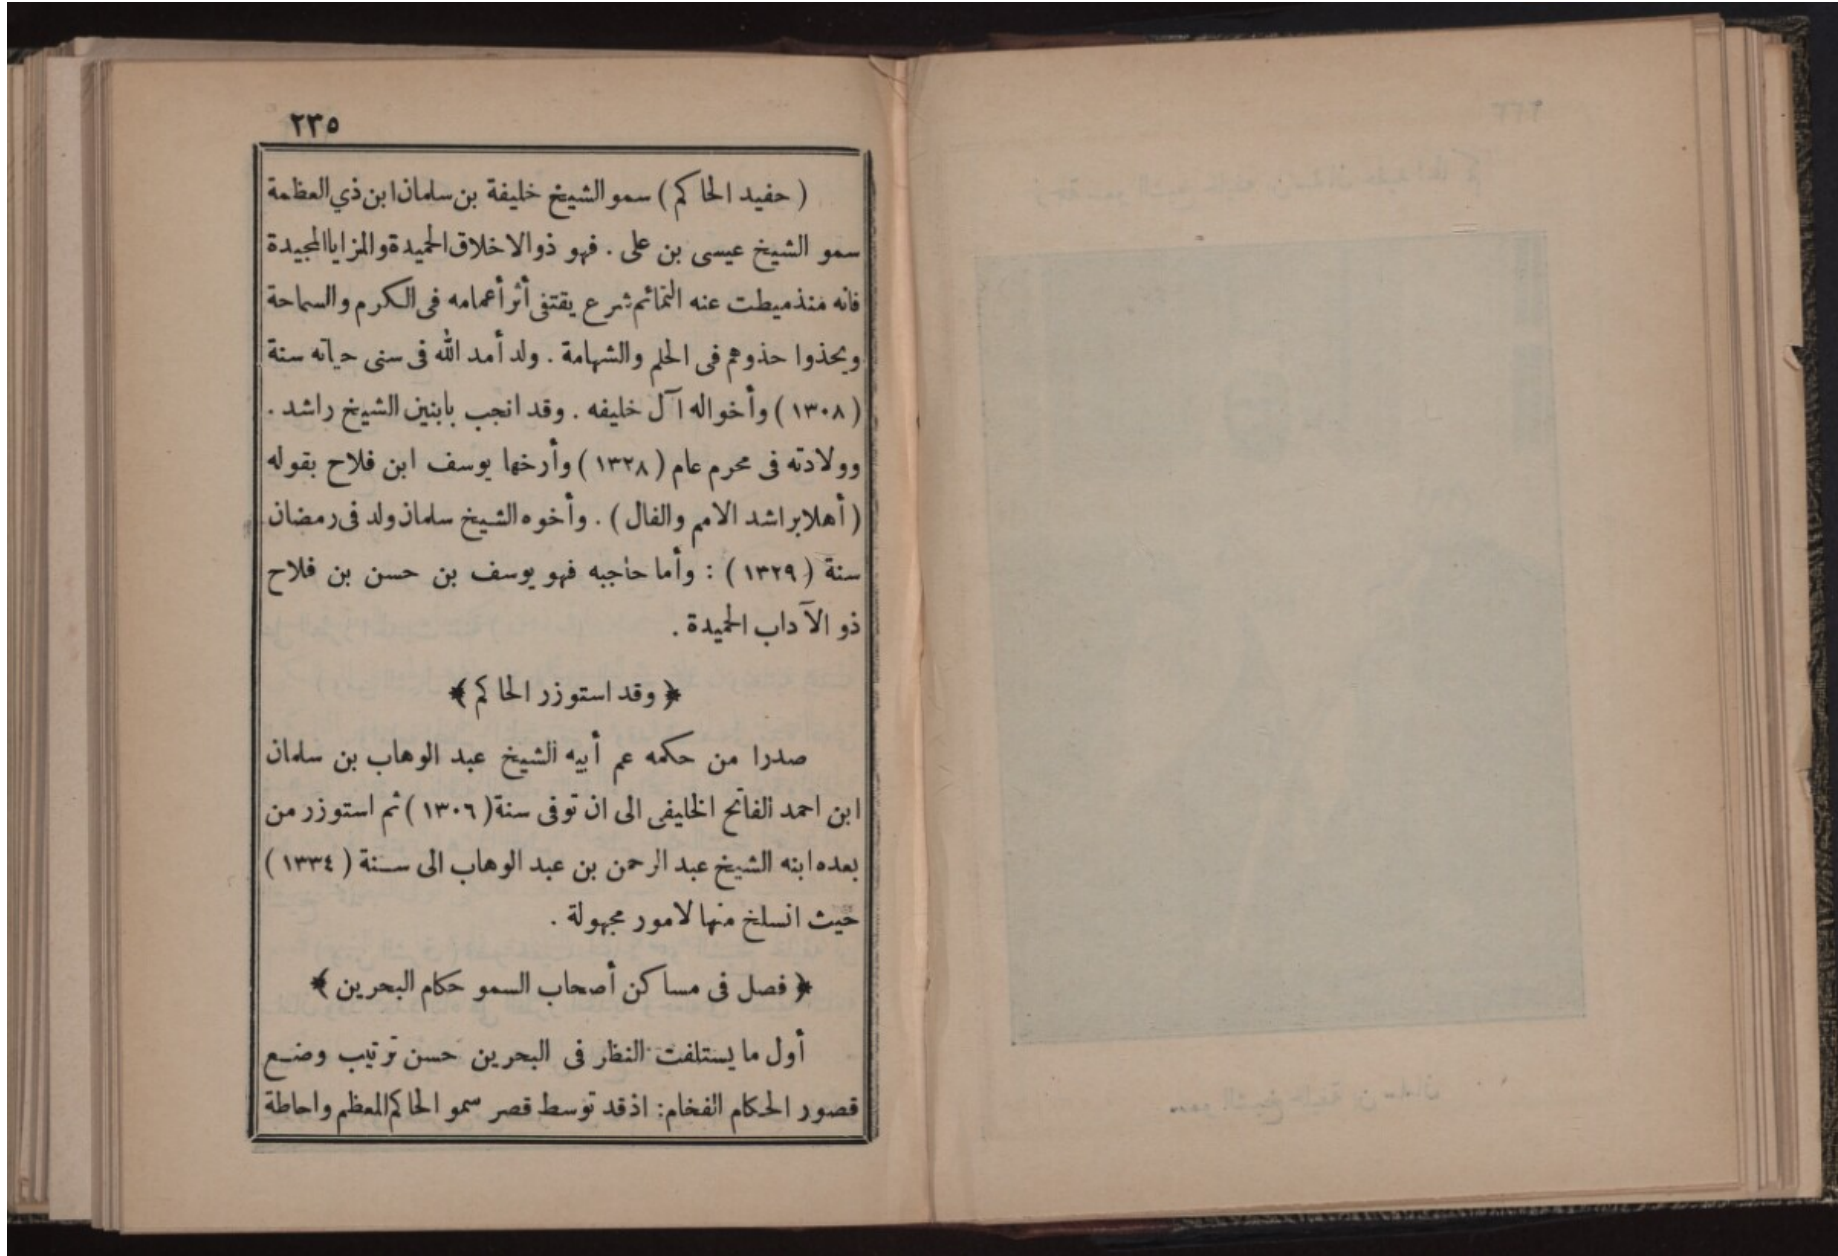 ٢٣٥
( حفيد الحاكم ) سمو الشيخ خليفة بن سلمان ابن ذي العظمة
سمو الشيخ عيسى بن على . فهو ذو الاخلاق الحميدة والمزايا المجيدة
فانه منذ ميطت عنه التمائم شرع يقتفى أثر أعمامه فى الكرم والسماحة
ويحذوا حذوهم فى الحلم والشهامة . ولد أمد الله فى سنى حياته سنة
( ١٣٠٨ ) وأخواله آل خليفه . وقد انجب بابنين الشيخ راشد .
وولادته فى محرم عام ( ١٣٢٨ ) وأرخها يوسف ابن فلاح بقوله
( أهلا براشد الامم والفال ) . وأخوه الشيخ سلمان ولد فى رمضان
سنة ( ١٣٢٩ ) : وأما حاجبه فهو يوسف بن حسن بن فلاح
ذو الآداب الحميدة .
﴿ وقد استوزر الحاكم ﴾
صدرا من حكمه عم أبيه الشيخ عبد الوهاب بن سلمان
ابن احمد الفاتح الخليفى الى ان توفى سنة ( ١٣٠٦ ) ثم استوزر من
بعده ابنه الشيخ عبد الرحمن بن عبد الوهاب الى سنة ( ١٣٣٤ )
حيث انسلخ منها لامور مجهولة .
﴿ فصل فى مساكن أصحاب السمو حكام البحرين ﴾
أول ما يستلفت النظر فى البحرين حسن ترتيب وضع
قصور الحكام الفخام : اذ قد توسط قصر سمو الحاكم المعظم واحاطة